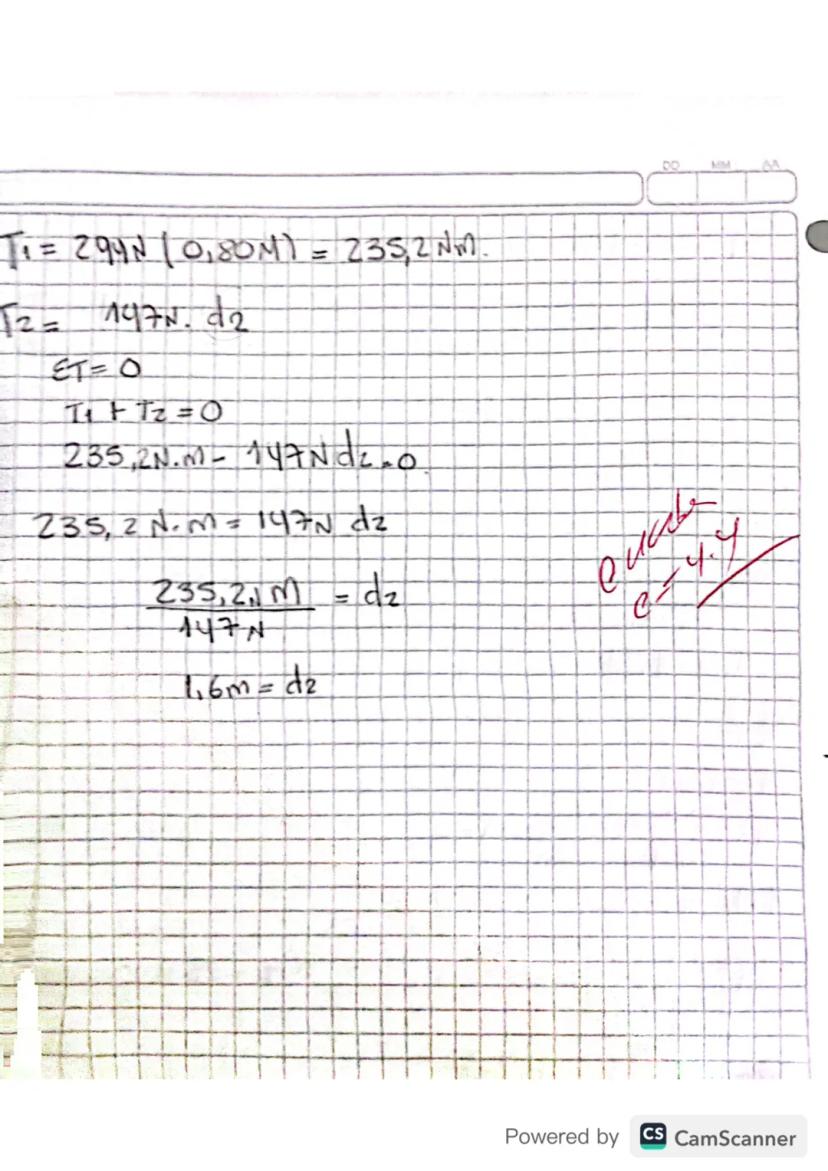 DD MM AA
T1 = 294N (0,80M) = 235,2 Nm.
T2 = 147N. d2
ΣT= 0
T1 + T2 = 0
235,2N.m - 147N d2 = 0
235,2 N.m = 147N d2
235,2N M = d2
147N
1,6m = d2
e = 4.4
Powered by CS CamScanner